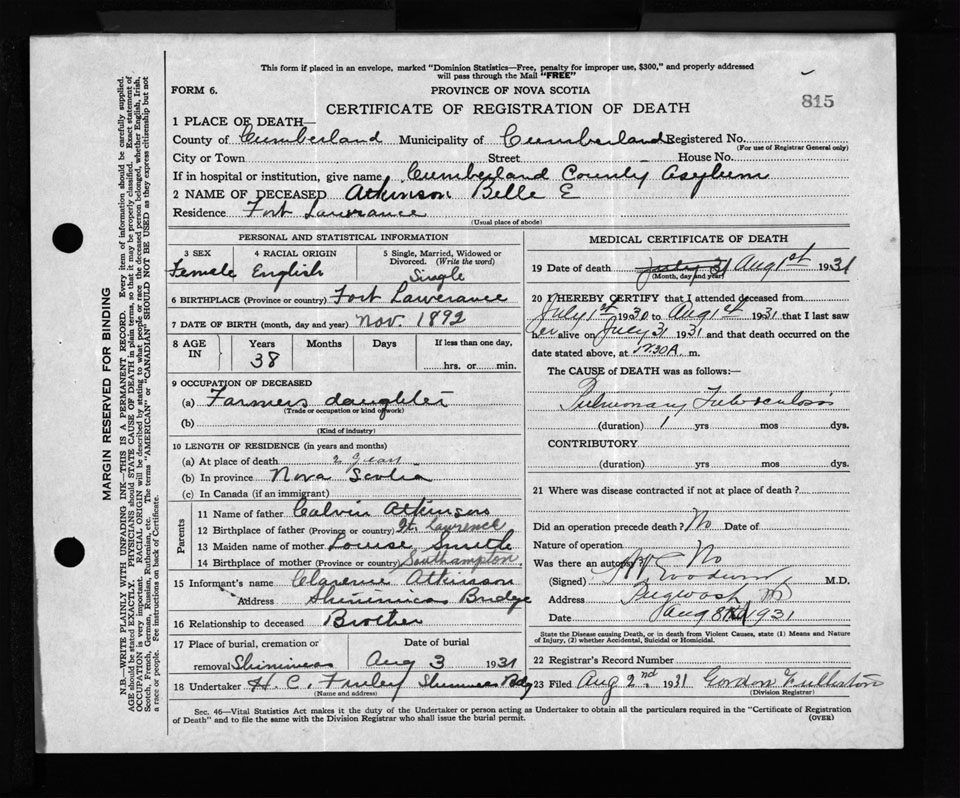 This form if placed in an envelope, marked "Dominion Statistics—Free, penalty for improper use, $300," and properly addressed
will pass through the Mail "FREE"
FORM 6.
PROVINCE OF NOVA SCOTIA
815
CERTIFICATE OF REGISTRATION OF DEATH
1 PLACE OF DEATH—
County of Cumberland Municipality of Cumberland Registered No.
(For use of Registrar General only)
City or Town Street House No.
If in hospital or institution, give name Cumberland County Asylum
2 NAME OF DECEASED Atkinson Belle E
Residence Fort Lawrance
(Usual place of abode)
PERSONAL AND STATISTICAL INFORMATION
3 SEX 4 RACIAL ORIGIN 5 Single, Married, Widowed or
Divorced. (Write the word)
Female English Single
6 BIRTHPLACE (Province or country) Fort Lawerance
7 DATE OF BIRTH (month, day and year) Nov. 1892
8 AGE IN Years Months Days If less than one day,
38 hrs. or min.
9 OCCUPATION OF DECEASED
(a) Farmers daughter
(Trade or occupation or kind of work)
(b)
(Kind of industry)
10 LENGTH OF RESIDENCE (in years and months)
(a) At place of death 2 years
(b) In province Nova Scotia
(c) In Canada (if an immigrant)
Parents
11 Name of father Calvin Atkinson
12 Birthplace of father (Province or country) Ft. Lawrence
13 Maiden name of mother Louise Smith
14 Birthplace of mother (Province or country) Southampton
15 Informant's name Clarence Atkinson
Address Shinimicas Bridge
16 Relationship to deceased Brother
17 Place of burial, cremation or Date of burial
removal Shinimicas Aug 3 1931
18 Undertaker H. C. Shinimicas Bdg
(Name and address)
MEDICAL CERTIFICATE OF DEATH
19 Date of death July 31 Aug 1st 1931
(Month, day and year)
20 I HEREBY CERTIFY that I attended deceased from
July 1st 1930 to Aug 1st 1931 that I last saw
her alive on July 31 1931 and that death occurred on the
date stated above, at 12.30 A. m.
The CAUSE of DEATH was as follows:—
Pulmonary Tuberculosis
(duration) 1 yrs mos dys.
CONTRIBUTORY
(duration) yrs mos dys.
21 Where was disease contracted if not at place of death?
Did an operation precede death? No Date of
Nature of operation
Was there an autopsy? No
(Signed) M.D.
Address Pugwash
Date Aug 8th 1931
State the Disease causing Death, or in death from Violent Causes, state (1) Means and Nature
of Injury, (2) whether Accidental, Suicidal or Homicidal.
22 Registrar's Record Number
23 Filed Aug 2nd. 1931 Gordon Fullerton
(Division Registrar)
Sec. 46—Vital Statistics Act makes it the duty of the Undertaker or person acting as Undertaker to obtain all the particulars required in the "Certificate of Registration
of Death" and to file the same with the Division Registrar who shall issue the burial permit.
(OVER)
MARGIN RESERVED FOR BINDING
N.B.—WRITE PLAINLY WITH UNFADING INK—THIS IS A PERMANENT RECORD. Every item of information should be carefully supplied.
AGE should be stated EXACTLY. PHYSICIANS should STATE CAUSE OF DEATH in plain terms, so that it may be properly classified. Exact statement of
OCCUPATION is very important. RACIAL ORIGIN will be described by stating to what people or race the deceased person belonged, whether English, Irish,
Scotch, French, German, Russian, Ruthenian, etc. The terms "AMERICAN" or "CANADIAN" SHOULD NOT BE USED as they express citizenship but not
a race or people. See instructions on back of Certificate.